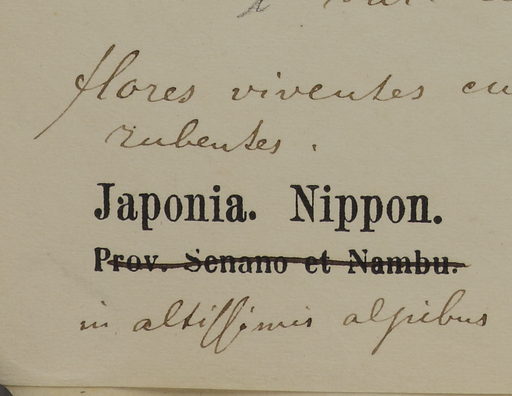 flores viventes
rubentes.
Japonia. Nippon.
Prov. Senano et Nambu.
in altissimis alpibus